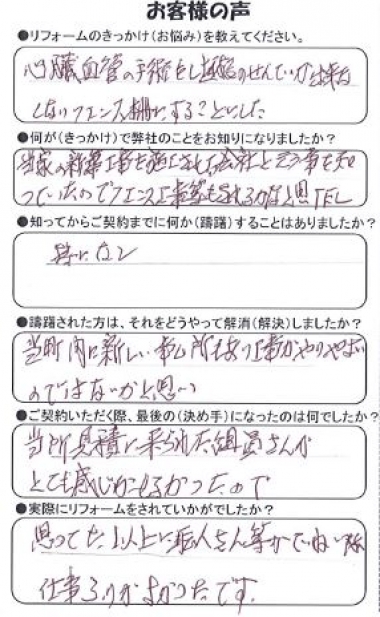 お客様の声
●リフォームのきっかけ(お悩み)を教えてください。
心臓血管の手術をし垣根のせんていが出来
ないフェンス柵にすることにした
●何が(きっかけ)で弊社のことをお知りになりましたか?
当家の新築工事を施工された会社と云う事を知
っていたのでフェンス工事等もされるかなと思TEL
●知ってからご契約までに何か(躊躇)することはありましたか?
特にない
●躊躇された方は、それをどうやって解消(解決)しましたか?
当町内に新しい事ム所もあり工事がやりやすい
のではないかと思い
●ご契約いただく際、最後の(決め手)になったのは何でしたか?
当所見積に来られた組員さんが
とても感じがよかったので
●実際にリフォームをされていかがでしたか?
思ってた以上に職人さん等がていねい
仕事ぶりがよかったです。